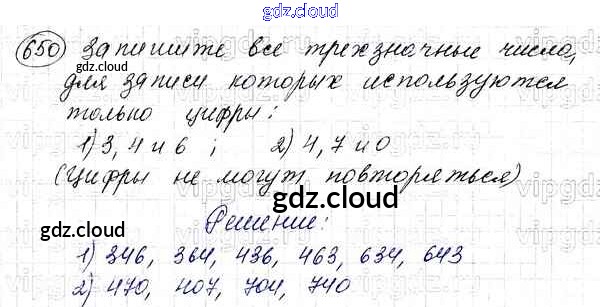 gdz.cloud
650 Запишите все трехзначные числа,
для записи которых используются
только цифры:
1) 3, 4 и 6 ; 2) 4, 7 и 0
(Цифры не могут повторяться)
Решение:
1) 346, 364, 436, 463, 634, 643
2) 470, 407, 704, 740
gdz.cloud
gdz.cloud
gdz.cloud
gdz.cloud
gdz.cloud